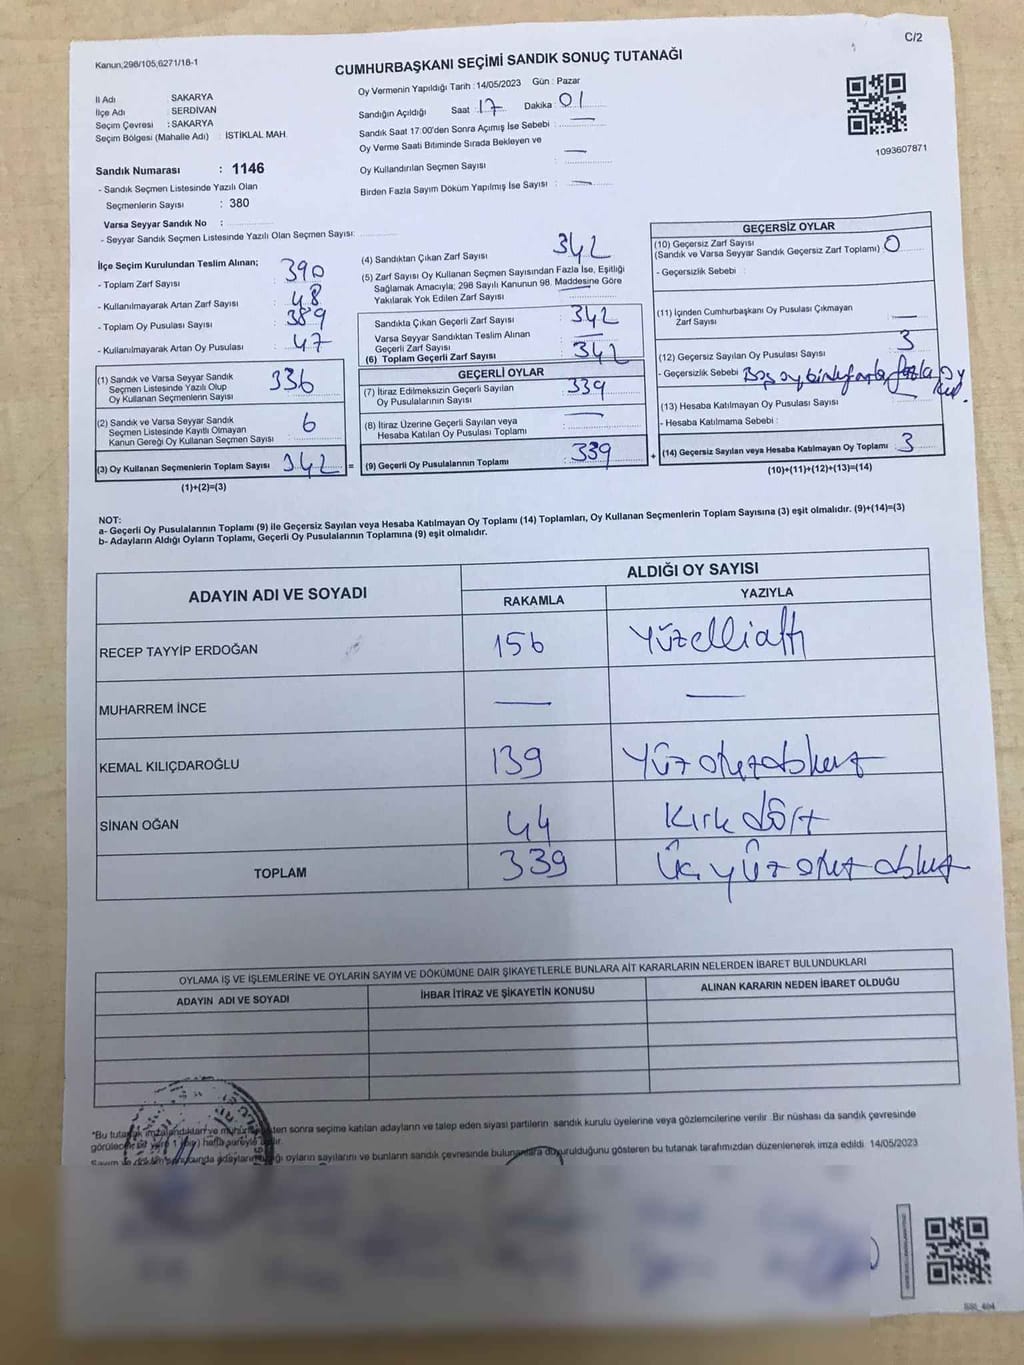 C/2
Kanun,298/105,6271/18-1
CUMHURBAŞKANI SEÇİMİ SANDIK SONUÇ TUTANAĞI
İl Adı : SAKARYA
İlçe Adı : SERDİVAN
Seçim Çevresi : SAKARYA
Seçim Bölgesi (Mahalle Adı) : İSTİKLAL MAH.
Sandık Numarası : 1146
- Sandık Seçmen Listesinde Yazılı Olan
Seçmenlerin Sayısı : 380
Varsa Seyyar Sandık No :
- Seyyar Sandık Seçmen Listesinde Yazılı Olan Seçmen Sayısı:
Oy Vermenin Yapıldığı Tarih : 14/05/2023 Gün : Pazar
Sandığın Açıldığı Saat : 17 Dakika : 01
Sandık Saat 17:00'den Sonra Açımış İse Sebebi : —
Oy Verme Saati Bitiminde Sırada Bekleyen ve
Oy Kullandırılan Seçmen Sayısı : —
Birden Fazla Sayım Döküm Yapılmış İse Sayısı : —
1093607871
İlçe Seçim Kurulundan Teslim Alınan;
- Toplam Zarf Sayısı : 390
- Kullanılmayarak Artan Zarf Sayısı : 48
- Toplam Oy Pusulası Sayısı : 389
- Kullanılmayarak Artan Oy Pusulası : 47
(1) Sandık ve Varsa Seyyar Sandık
Seçmen Listesinde Yazılı Olup
Oy Kullanan Seçmenlerin Sayısı : 336
(2) Sandık ve Varsa Seyyar Sandık
Seçmen Listesinde Kayıtlı Olmayan
Kanun Gereği Oy Kullanan Seçmen Sayısı : 6
(3) Oy Kullanan Seçmenlerin Toplam Sayısı : 342 =
(1)+(2)=(3)
(4) Sandıktan Çıkan Zarf Sayısı : 342
(5) Zarf Sayısı Oy Kullanan Seçmen Sayısından Fazla İse, Eşitliği
Sağlamak Amacıyla; 298 Sayılı Kanunun 98. Maddesine Göre
Yakılarak Yok Edilen Zarf Sayısı : —
Sandıkta Çıkan Geçerli Zarf Sayısı : 342
Varsa Seyyar Sandıktan Teslim Alınan
Geçerli Zarf Sayısı : —
(6) Toplam Geçerli Zarf Sayısı : 342
GEÇERLİ OYLAR
(7) İtiraz Edilmeksizin Geçerli Sayılan
Oy Pusulalarının Sayısı : 339
(8) İtiraz Üzerine Geçerli Sayılan veya
Hesaba Katılan Oy Pusulası Toplamı : —
(9) Geçerli Oy Pusulalarının Toplamı : 339 +
GEÇERSİZ OYLAR
(10) Geçersiz Zarf Sayısı
(Sandık ve Varsa Seyyar Sandık Geçersiz Zarf Toplamı) : 0
- Geçersizlik Sebebi :
(11) İçinden Cumhurbaşkanı Oy Pusulası Çıkmayan
Zarf Sayısı : —
(12) Geçersiz Sayılan Oy Pusulası Sayısı : 3
- Geçersizlik Sebebi : Boş oy fazla oy
(13) Hesaba Katılmayan Oy Pusulası Sayısı :
- Hesaba Katılmama Sebebi :
(14) Geçersiz Sayılan veya Hesaba Katılmayan Oy Toplamı : 3
(10)+(11)+(12)+(13)=(14)
NOT:
a- Geçerli Oy Pusulalarının Toplamı (9) ile Geçersiz Sayılan veya Hesaba Katılmayan Oy Toplamı (14) Toplamları, Oy Kullanan Seçmenlerin Toplam Sayısına (3) eşit olmalıdır. (9)+(14)=(3)
b- Adayların Aldığı Oyların Toplamı, Geçerli Oy Pusulalarının Toplamına (9) eşit olmalıdır.
ADAYIN ADI VE SOYADI ALDIĞI OY SAYISI
RAKAMLA YAZIYLA
RECEP TAYYİP ERDOĞAN 156 Yüzellialtı
MUHARREM İNCE — —
KEMAL KILIÇDAROĞLU 139 Yüz otuzdokuz
SİNAN OĞAN 44 Kırk dört
TOPLAM 339 Üç yüz otuz dokuz
OYLAMA İŞ VE İŞLEMLERİNE VE OYLARIN SAYIM VE DÖKÜMÜNE DAİR ŞİKAYETLERLE BUNLARA AİT KARARLARIN NELERDEN İBARET BULUNDUKLARI
ADAYIN ADI VE SOYADI İHBAR İTİRAZ VE ŞİKAYETİN KONUSU ALINAN KARARIN NEDEN İBARET OLDUĞU
*Bu tutanak imzalandıktan ve mühürlendikten sonra seçime katılan adayların ve talep eden siyasi partilerin sandık kurulu üyelerine veya gözlemcilerine verilir. Bir nüshası da sandık çevresinde
görülecek bir yere 1 (bir) hafta süreyle asılır.
Sayım ve döküm sonucunda adayların aldığı oyların sayılarını ve bunların sandık çevresinde bulunanlara duyurulduğunu gösteren bu tutanak tarafımızdan düzenlenerek imza edildi. 14/05/2023